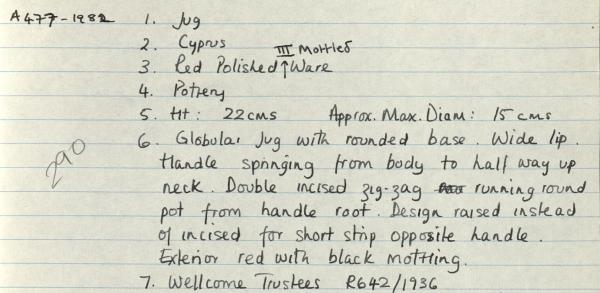 A477-1982 1. Jug
2. Cyprus
3. Red Polished ↑ III Mottled Ware
4. Pottery
5. Ht: 22cms Approx. Max. Diam: 15 cms
6. Globular Jug with rounded base. Wide lip.
290
Handle springing from body to half way up
neck. Double incised zig-zag running round
pot from handle root. Design raised instead
of incised for short strip opposite handle.
Exterior red with black mottling.
7. Wellcome Trustees R642/1936